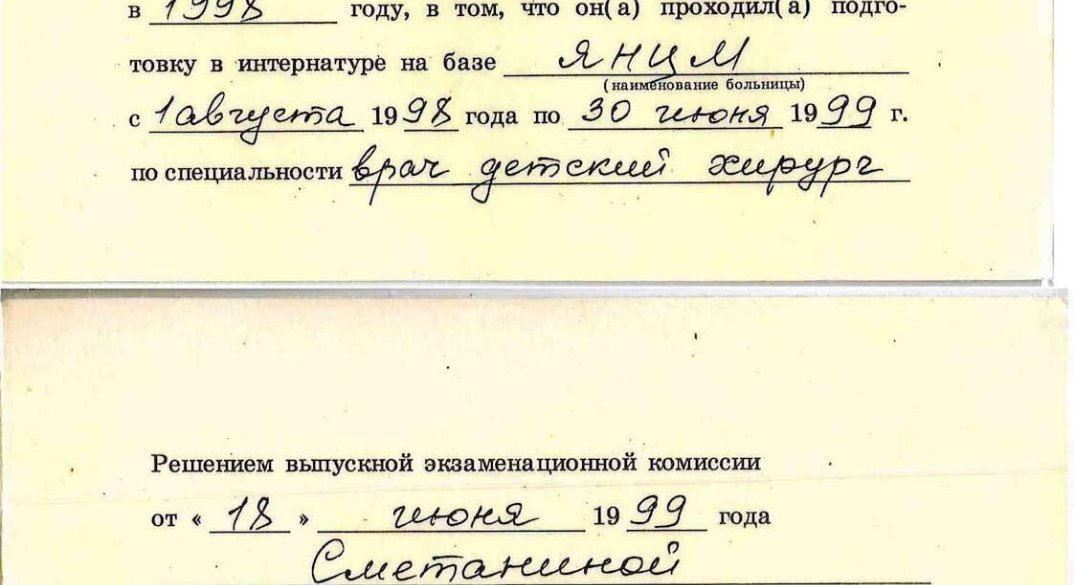 в 1998 году, в том, что он(а) проходил(а) подго-
товку в интернатуре на базе ЯНЦМ
(наименование больницы)
с 1 августа 1998 года по 30 июня 1999 г.
по специальности врач детский хирург
Решением выпускной экзаменационной комиссии
от « 18 » июня 1999 года
Сметаниной